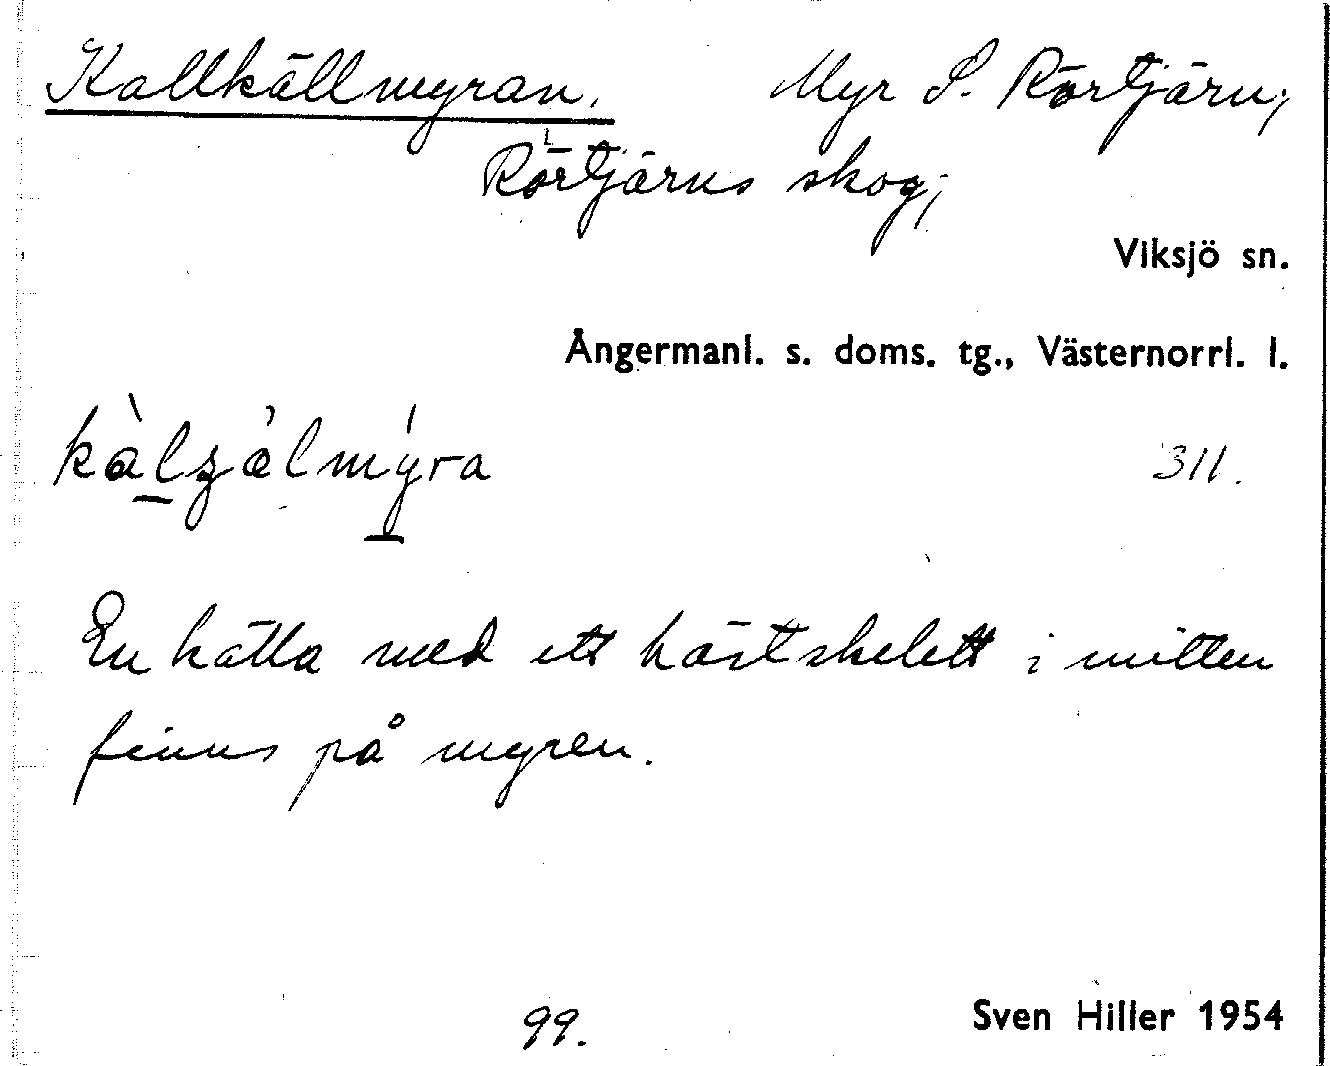 Kallkällmyran. Myr S. Rörtjärn;
Rörtjärns skog;
Viksjö sn.
Ångermanl. s. doms. tg., Västernorrl. l.
311.
En källa med ett hästskelett i mitten
finns på myren.
99.
Sven Hiller 1954